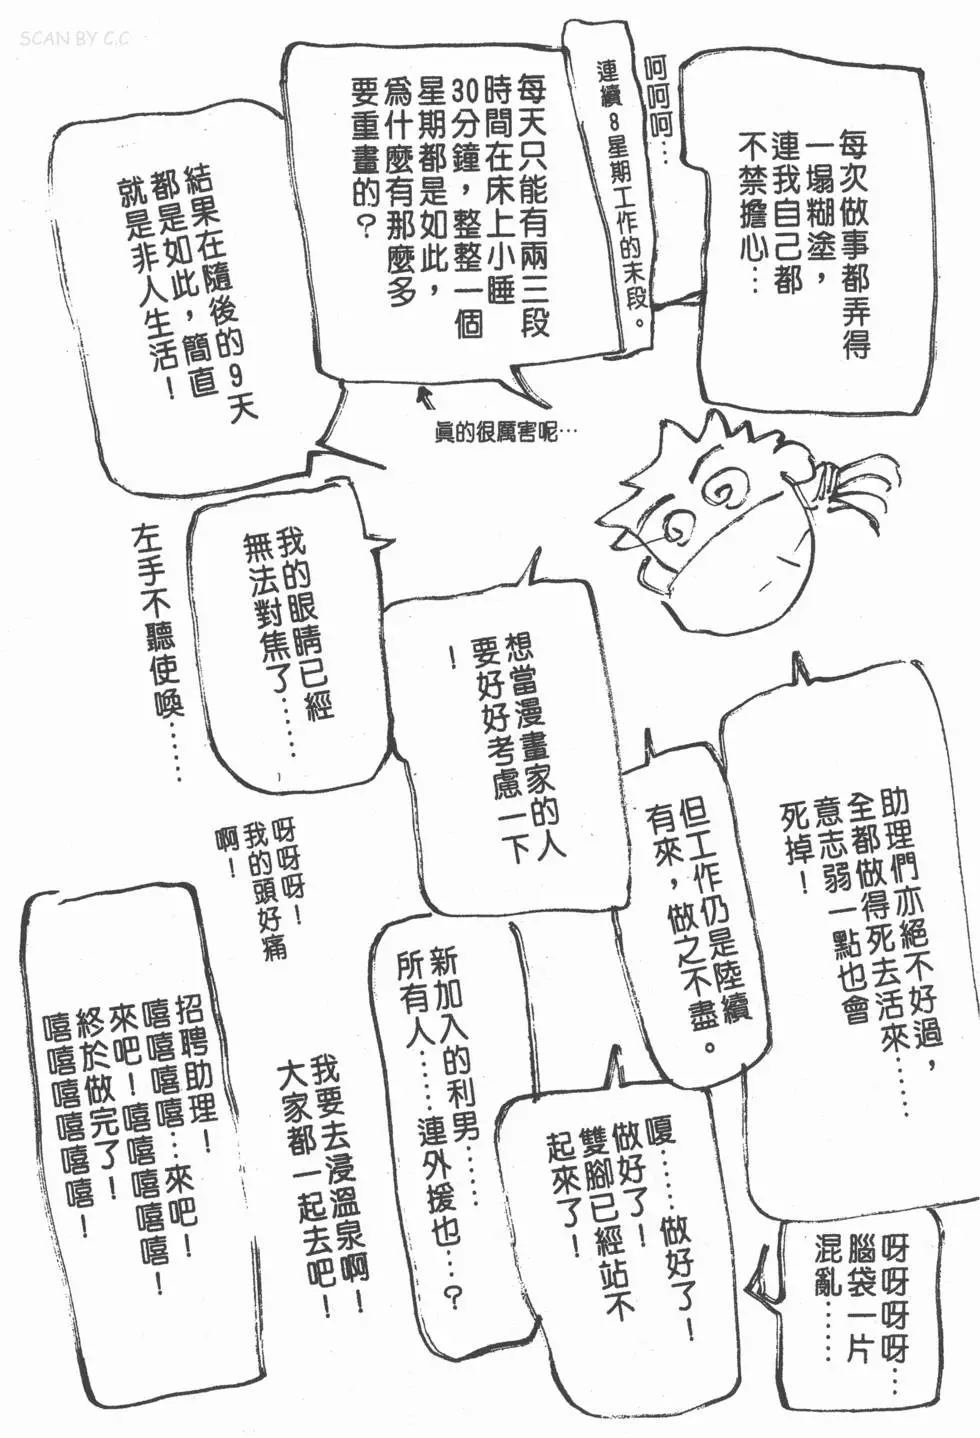 SCAN BY C.C
每次做事都弄得
一塌糊塗，
連我自己都
不禁擔心…
呵呵呵…
連續8星期工作的末段。
每天只能有兩三段
時間在床上小睡
30分鐘，整整一個
星期都是如此，
為什麼有那麼多
要重畫的？
真的很厲害呢…
結果在隨後的9天
都是如此，簡直
就是非人生活！
我的眼睛已經
無法對焦了……
左手不聽使喚……
想當漫畫家的人
要好好考慮一下
！
助理們亦絕不好過，
全都做得死去活來……
意志弱一點也會
死掉！
但工作仍是陸續
有來，做之不盡。
呀呀呀！
我的頭好痛
啊！
呀呀呀呀…
腦袋一片
混亂……
嗄……做好了！
做好了！
雙腳已經站不
起來了！
新加入的利男……
所有人……連外援也…？
我要去浸溫泉啊！
大家都一起去吧！
招聘助理！
嘻嘻嘻嘻…來吧！
來吧！嘻嘻嘻嘻嘻！
終於做完了！
嘻嘻嘻嘻嘻嘻嘻！